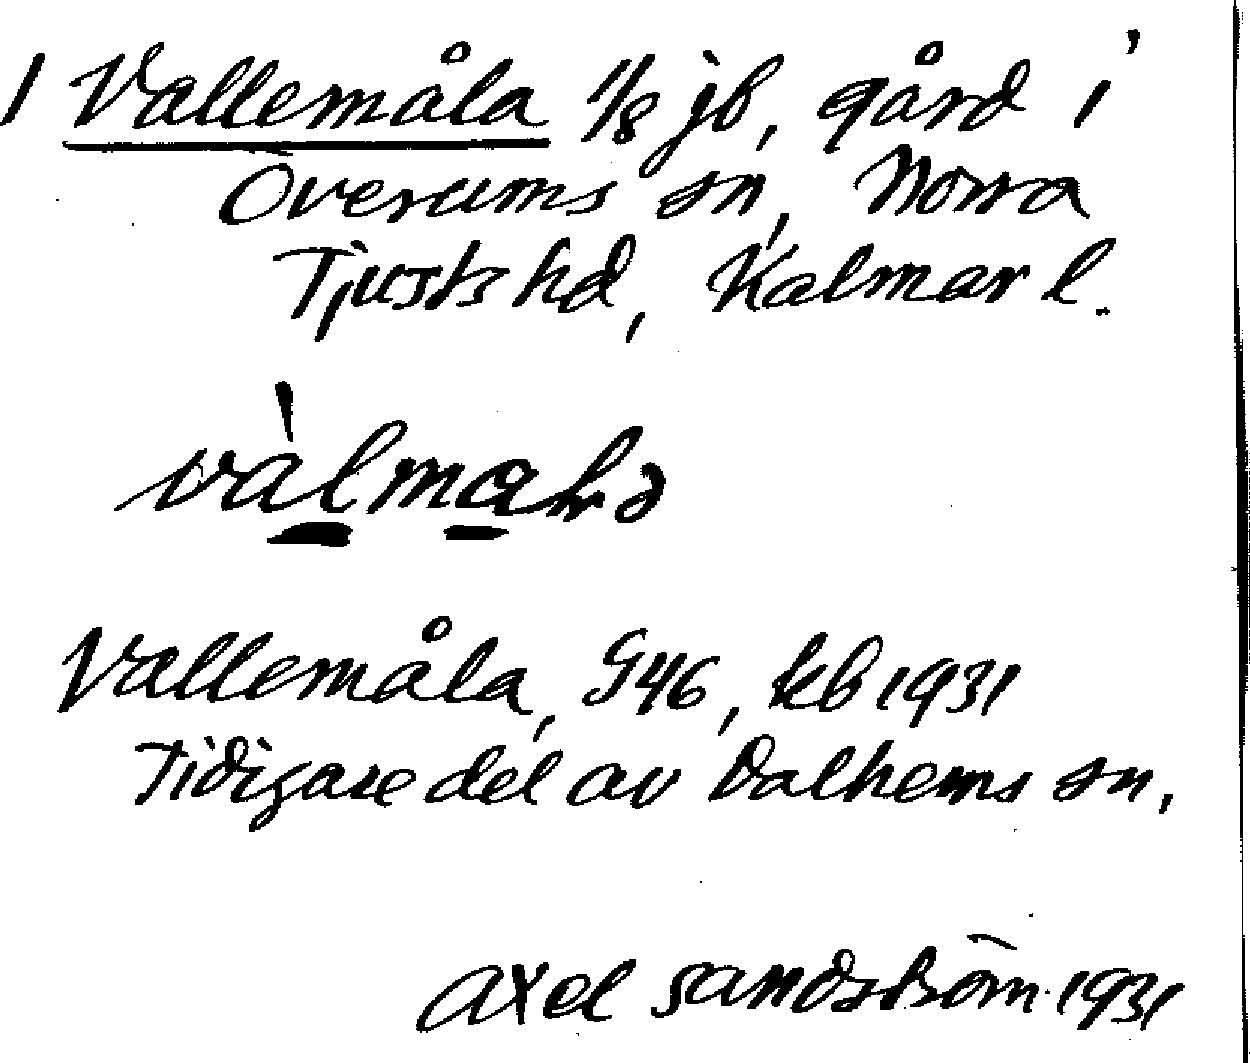 1 Vallemåla 1/8 jb, gård i
Överums sn, Norra
Tjusts hd, Kalmar l.
Vallemåla, G46, kb 1931
Tidigare del av Dalhems sn,
Axel Sandström 1931